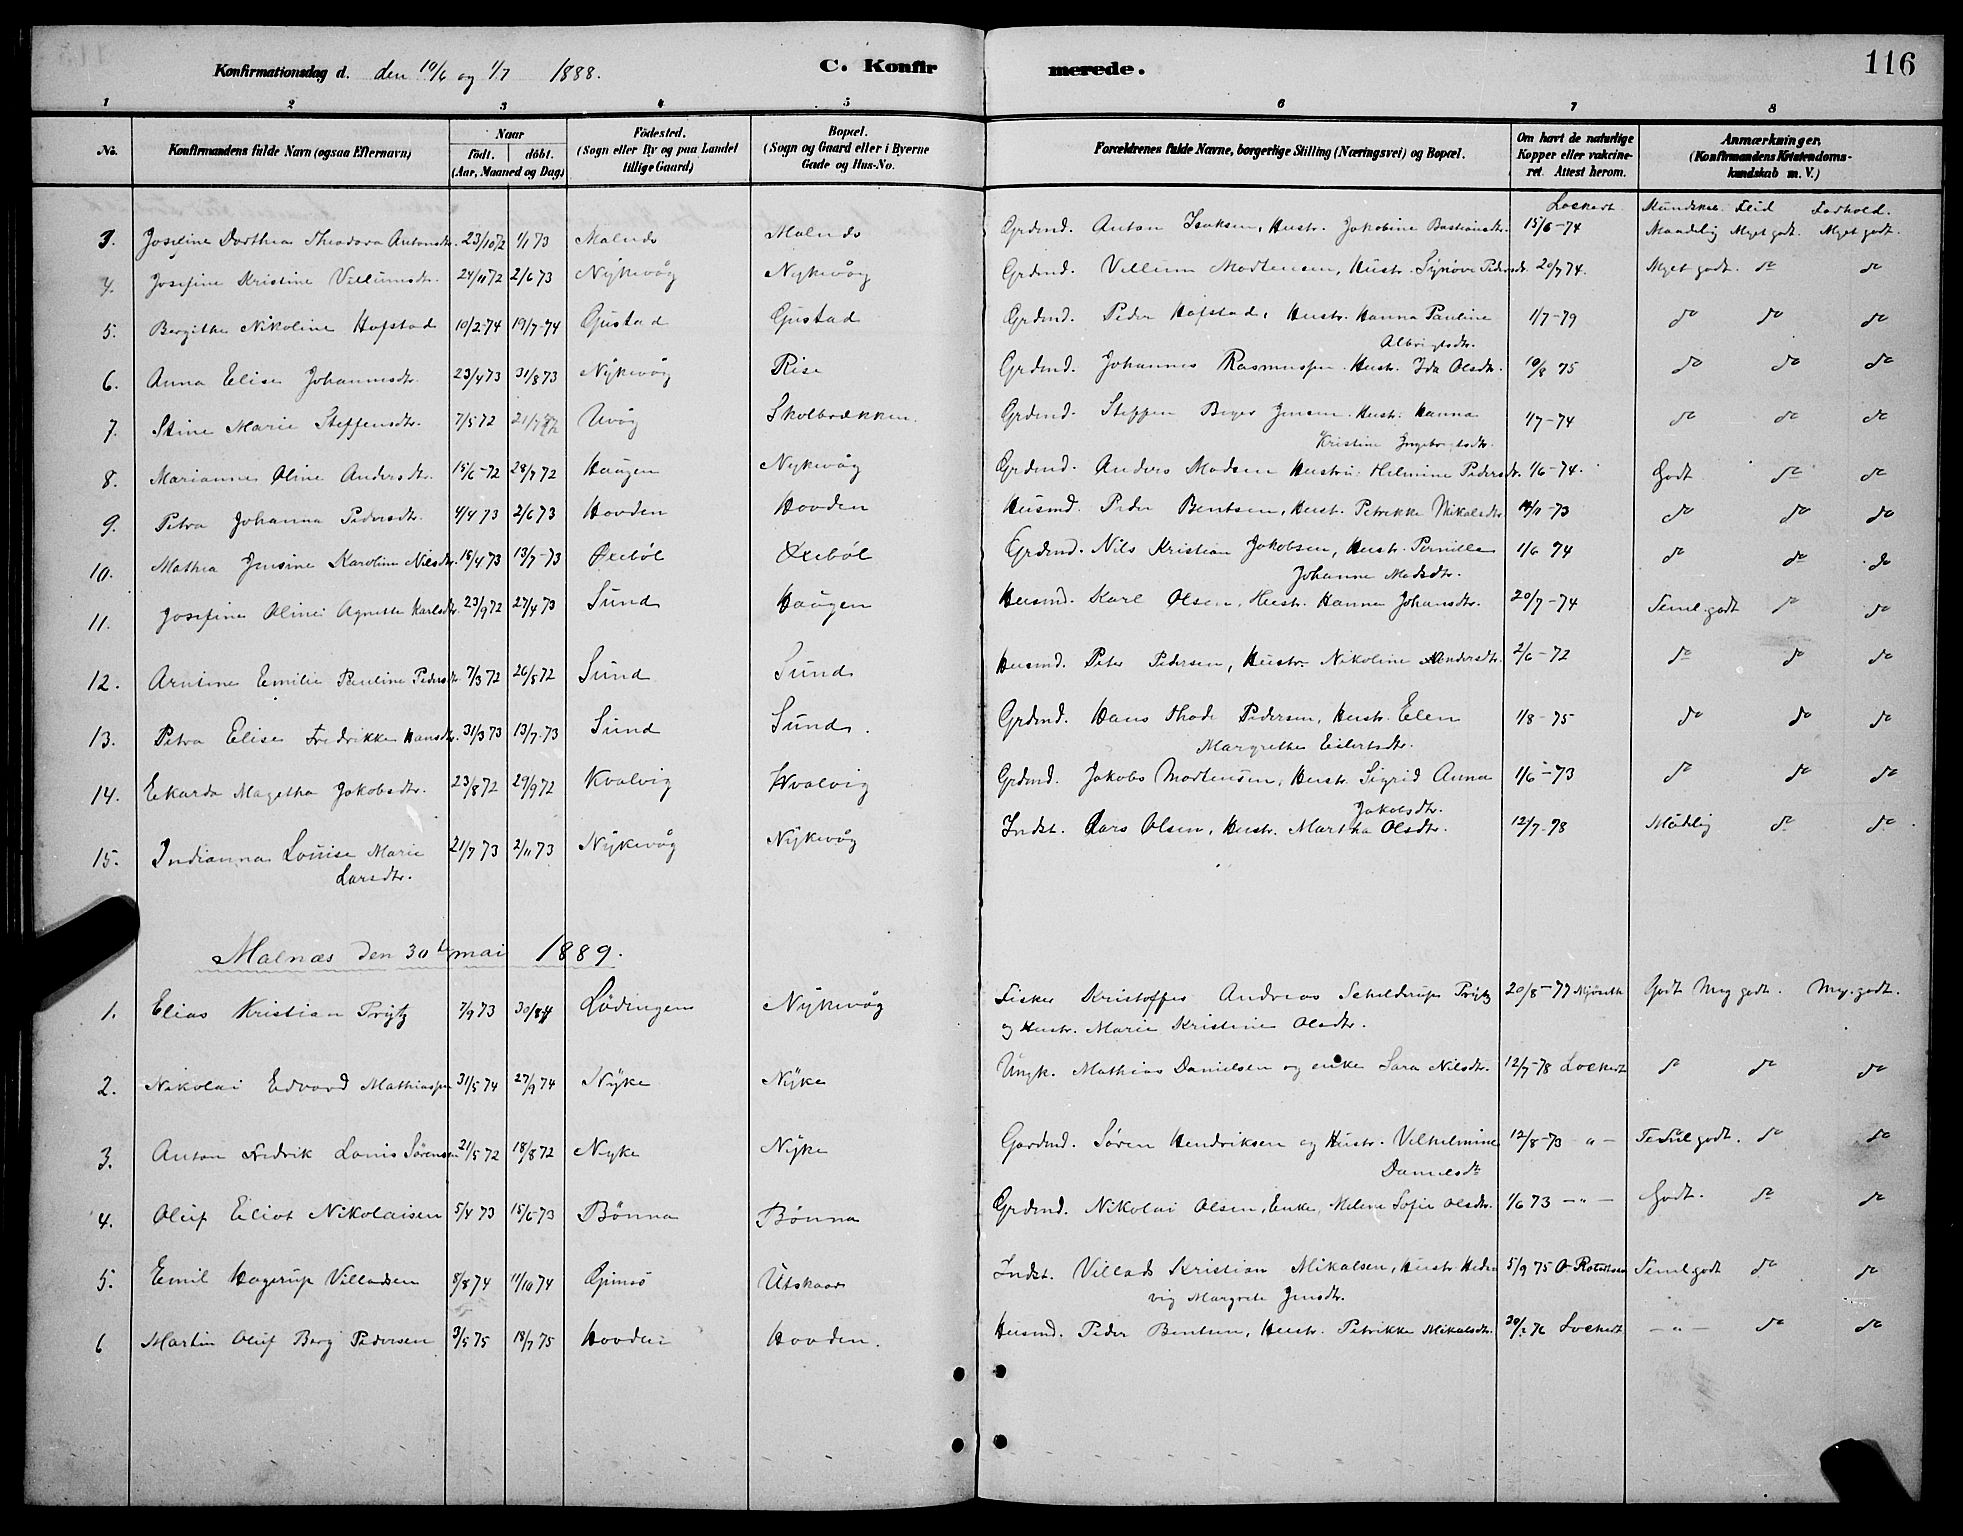 116
Konfirmationsdag d. den 10/6 og 1/7 1888. C. Konfirmerede.
1 2 3 4 5 6 7 8
No. Konfirmandens fulde Navn (ogsaa Efternavn) Naar födt. döbt. (Aar, Maaned og Dag) Födested. (Sogn eller By og paa Landet tillige Gaard) Bopæl. (Sogn og Gaard eller i Byerne Gade og Hus-No. Forældrenes fulde Navne, borgerlige Stilling (Næringsvei) og Bopæl. Om havt de naturlige Kopper eller vakcineret. Attest herom. Anmærkninger. (Konfirmandens Kristendomskundskab m. V.)
Lockert Kundskab Flid Forhold.
3. Josefine Dorthea Theodora Antonsdr. 23/10 72 1/1 73 Malnes Malnes Grdmd. Anton Isaksen, Hustr. Jakobine Bastiansdr. 15/6-74 Maadelig Myet godt. Myet godt.
4. Josefine Kristine Villumsdr. 24/11 72 2/6 73 Nykevåg Nykevåg Grdmd. Villum Mortensen, Hustr. Synøve Pedersdr. 20/7 74. Myet godt. do do
5. Bergithe Nikoline Hofstad 10/2-74 19/7-74 Gustad Gustad Grdmd. Peder Hofstad, Hustr. Hanna Pauline Albrigtsdr. 1/7-79 do do do
6. Anna Elise Johannsdtr. 23/4 73 31/8 73 Nykevåg Rise Grdmd. Johannes Rasmussen Hustr. Ida Olsdtr. 10/8 75 do do do
7. Stine Marie Steffensdtr. 7/5 72 21/7 72 Uvåg Skolbrækken. Grdmd. Steffen Beyer Jensen Hustr. Hanna Kristine Ingebrigtsdtr. 1/7-74 do do do
8. Marianne Oline Andersdtr. 15/6-72 28/7 72 Haugen Nykevåg Grdmd. Anders Madsen Hustru. Helmine Pedersdtr. 1/6-74. Godt do do
9. Petra Johanna Pedersdtr. 4/4 73 2/6 73 Hovden Hovden Husmd. Peder Bentsen, Hustr. Petrikke Mikalsdtr. 10/11-73 do do do
10. Mathea Jensine Karoline Nilsdtr. 18/4 73 13/7-73 Øxebøl Øxebøl Grdmd. Nils Kristian Jakobsen, Hustr. Pernille Johanne Madsdtr. 1/6 74 do do do
11. Josefine Oline Agnette Karlsdtr. 23/9 72 27/4 73 Sund Haugen Husmd. Karl Olsen, Hustr. Hanna Johansdtr. 20/7-74 Teml. godt do do
12. Arntine Emilie Pauline Pedersdtr 7/3 72 26/5 72 Sund Sund Husmd. Peter Pedersen, Hustr. Nikoline Andersdtr. 2/6-72 do do do
13. Petra Elise Fredrikke Hansdtr. 31/3 73 13/7-73 Sund Sund. Grdmd. Hans Thode Pedersen, Hustr. Elen Margrethe Eilertsdtr. 1/8-75 do do do
14. Ekarda Magetha Jakobsdtr. 23/8 72 29/9 72 Kvalvig Hvalvig Grdmd. Jakobs Mortensen, Hustr. Sigrid Anna Jakobsdtr. 1/6-73 do do do
15. Indianna Louise Marie Larsdtr. 21/7 73 2/11 73 Nykevåg Nykevåg Indst. Lars Olsen, Hustr. Martha Olsdtr. 12/7-78 Mådlig do do
Malnæs den 30te mai 1889.
1. Elias Kristian Prytz 7/9 73 30/8 74 Lødingen Nykevåg Fisker Kristoffer Andreas Schelderup Prytz og Hustr. Marie Kristine Olsdtr. 20/8-77 Godt Meg. godt. Meg. godt.
2. Nikolai Edvard Mathiassen 31/5 74 27/9 74 Nyke Nyke Ungk. Mathias Danielsen og enke Sara Nilsdtr. 12/7-78 Lockert do do do
3. Anton Fredrik Lonis Sørensen 21/5 72 18/8 72 Nyke Nyke Gardmd. Søren Hendriksen og Hustr. Vilhelmine Danielsdtr 12/8-73 -"- Teml godt. do do
4. Oluf Eliot Nikolaisen 5/4 73 15/6-73 Bønna Bønna Grdmd. Nikolai Olsen, Enke, Milene Sofie Olsdtr. 1/6 73 -"- Godt. do do
5. Emil Hagerup Villadsen 8/8 74 11/10 74 Gimsø Utskaar Indst. Villads Kristian Mikalsen, Hustr. Hedevig Margrete Jensdtr. 5/9 75 Teml godt do do
6 Martin Oluf Berg Pedersen 3/5 75 18/7 75 Hovden Hovden. Husmd. Peder Bentsen, Hustr. Petrikke Mikalsdtr. Lockert -"- do do